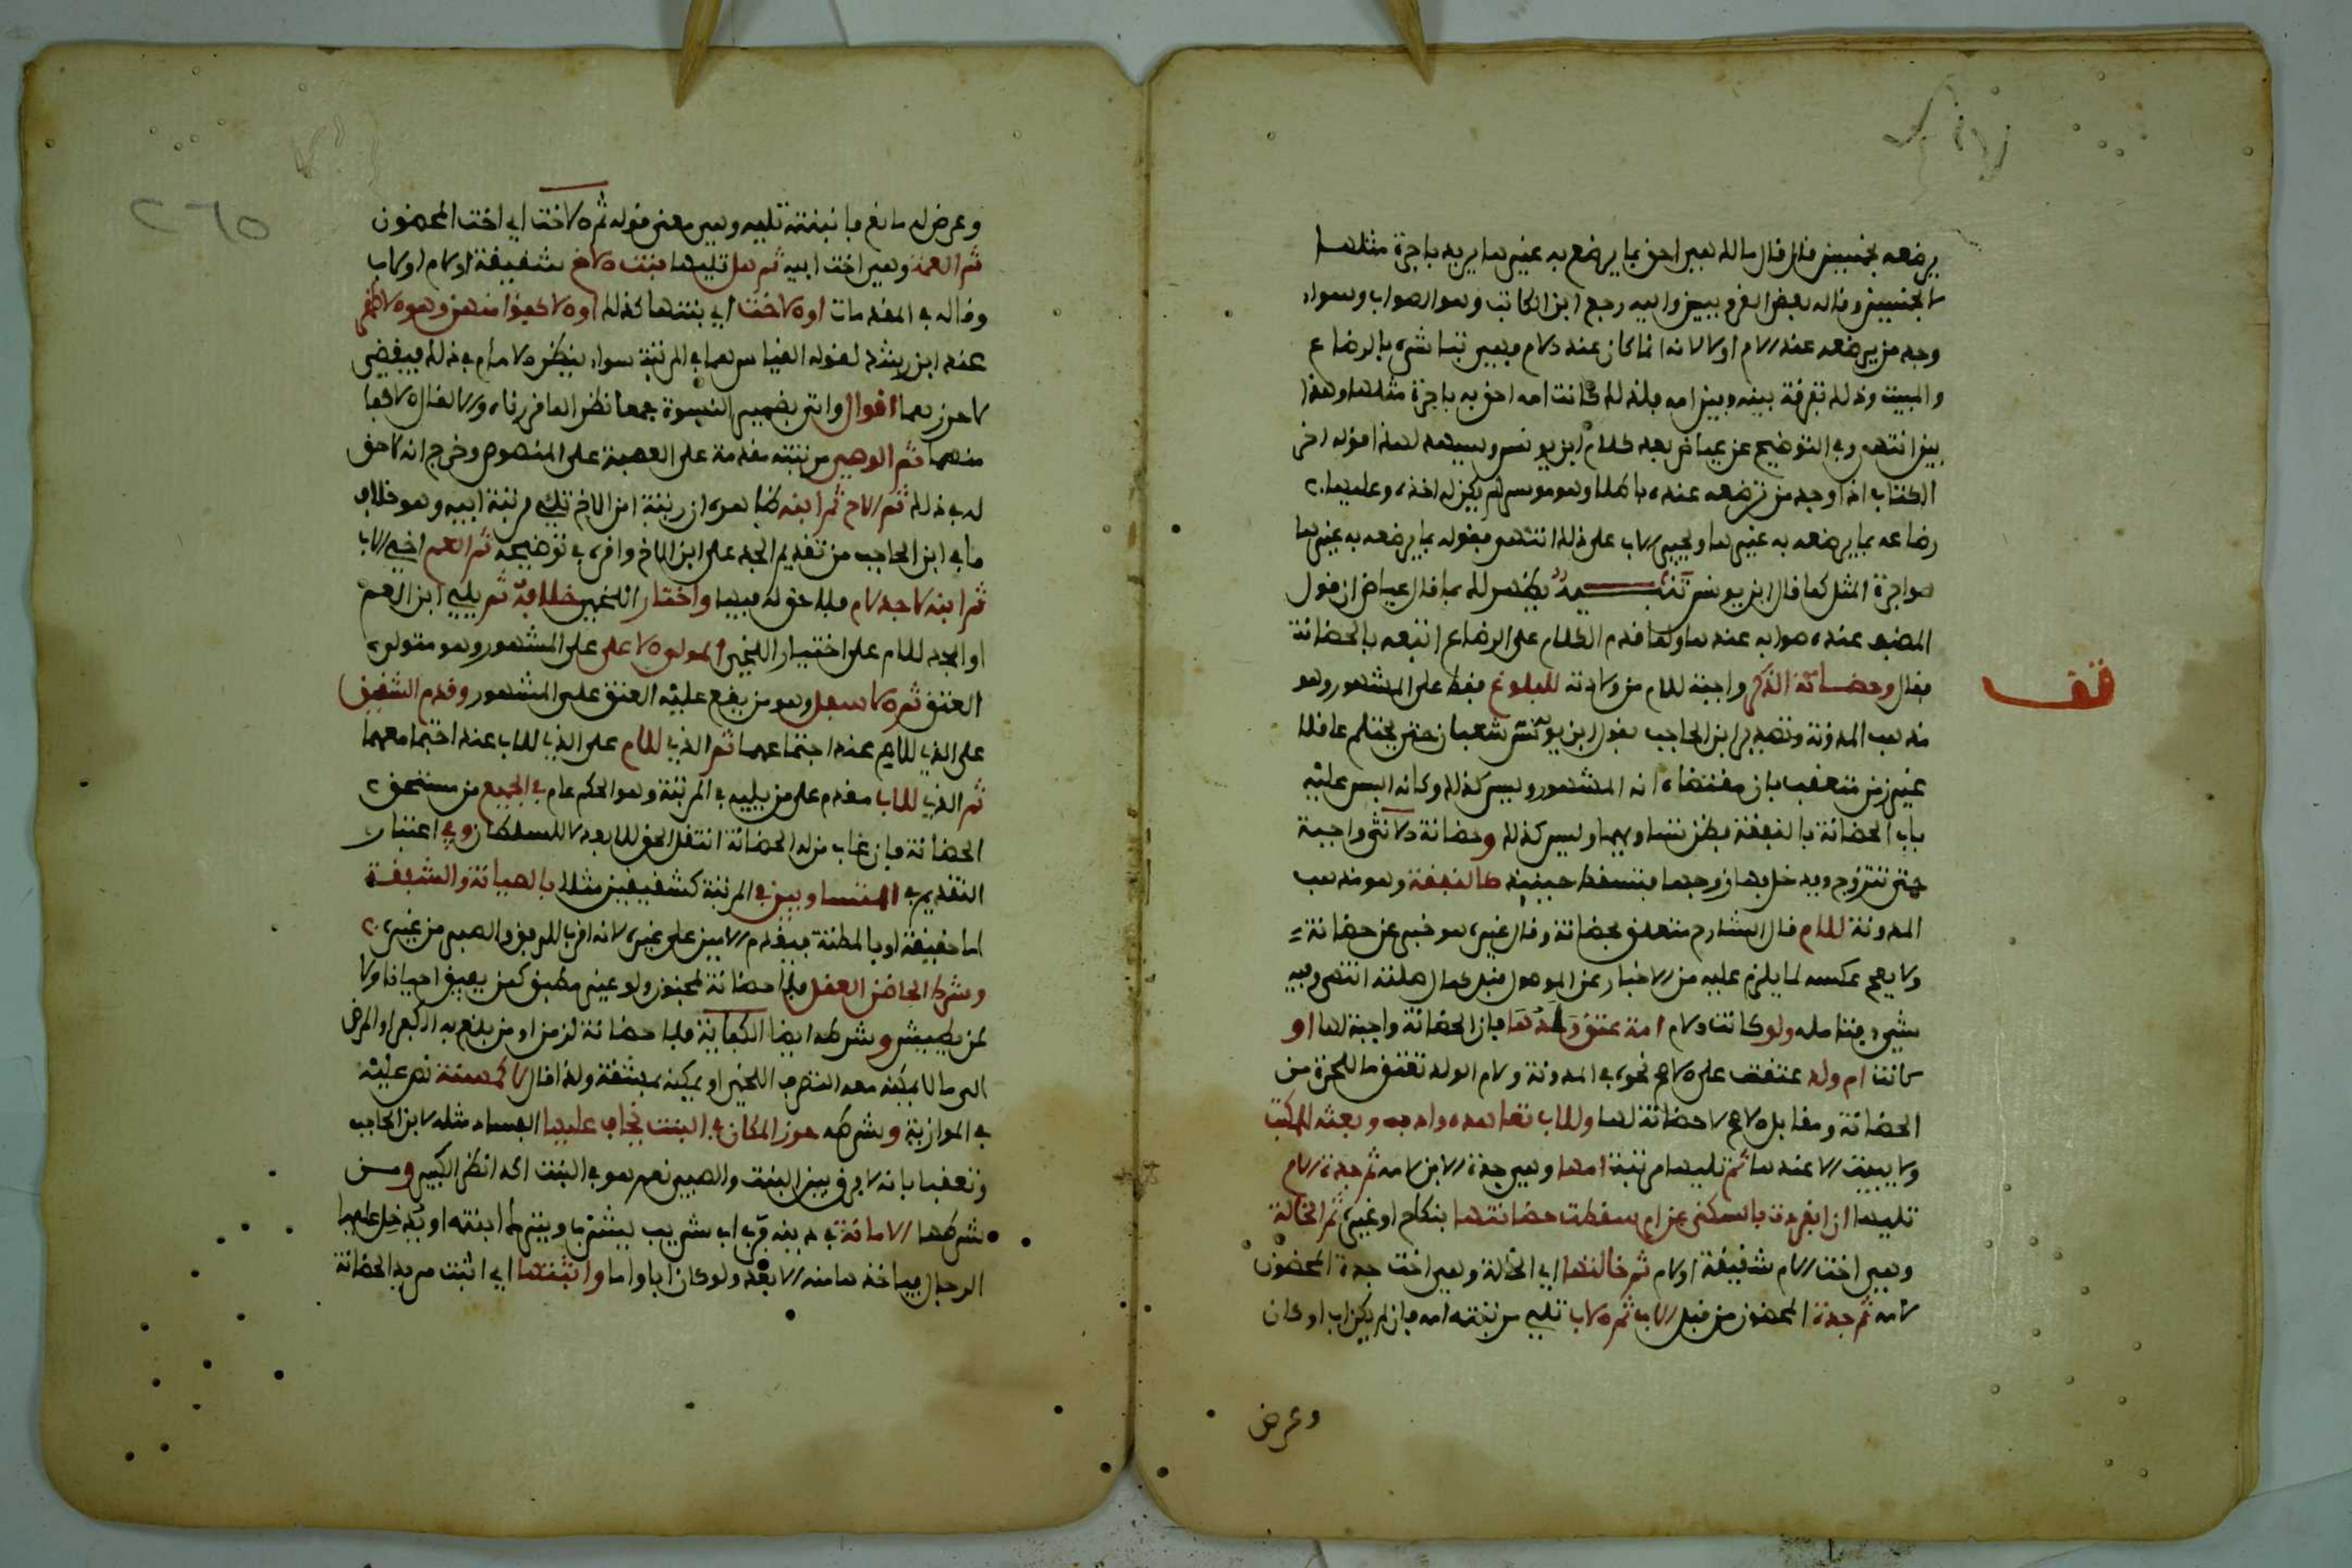 يرضعه بخمسين فال فال مالك هي احق بما يرضع به غيرها يريد باجرة مثلها
لا بخمسين وقاله بعض القرويين واليه رجع ابن الكاتب وهو الصواب وسواء
وجد من يرضعه عند الام او لا لانه انما كان عند الام فهي تباشره بالرضاع
والمبيت وذلك تفرقة بينه وبين امه فلذلك كانت امه احق به باجرة مثلها وهذا
بين انتهى وفي التوضيح عن عياض بعد كلام ابن يونس ويشهد لهذا قوله اخر
الكتاب اذا وجد من ترضعه عنده باطلا وهو موسر لم يكن له اخذه وعليها
رضاعه بما يرضعه به غيرها ويجبر الاب على ذلك انتهى فقوله بما يرضعه به غيرها
هو اجرة المثل كما قال ابن يونس تنبيه يظهر لك بما قال عياض ان قول
المصنف عنده صوابه عندها ولما قدم الكلام على الرضاع اتبعه بالحضانة
فقال وحضانة الذكر واجبة للام من ولادته للبلوغ فقط على المشهور وهو
مذهب المدونة وتصدير ابن الحاجب بقول ابن شعبان حتى يحتلم عاقلا
غير زمن متعقب بان مقتضاه انه المشهور وليس كذلك وكانه التبس عليه
باب الحضانة بالنفقة فظن تساويهما وليس كذلك وحضانة الانثى واجبة
حتى تتزوج ويدخل بها زوجها فتسقط حينيذ كالنفقة وهو مذهب
المدونة للام قال الشارح متعلق بحضانة وقال غيره هو خبر عن حضانة
ولا يصح عكسه لما يلزم عليه من الاخبار عن الموصول قبل كمال صلته انتهى وفيه
شيء فتامله ولو كانت الام امة عتق ولدها فان الحضانة واجبة لها او
كانت ام ولد عتقت على الاصح نحوه في المدونة ولام الولد تعتق ما للحرة من
الحضانة ومقابل الاصح لا حضانة لها وللاب تعاهده وادبه وبعثه للمكتب
ولا يبيت الا عندها ثم تليها مرتبة امها وهي جدة الابن لامه ثم جدة الام
تليها ان انفردت بالسكنى عن ام سقطت حضانتها بنكاح او غيره ثم الخالة
وهي اخت الام شقيقة او لام ثم خالتها اي الخالة وهي اخت جدة المحضون
لامه ثم جدة المحضون من قبل الاب ثم الاب تليه مرتبته امه فان لم يكن اب او كان
وعرض
قف
٢٦٥
وعرض له مانع فابنته تليه وهي معنى قوله ثم الاخت اي اخت المحضون
ثم العمة وهي اخت ابيه ثم هل تليها بنت الاخ شقيقة او لام او لاب
وقاله في المقدمات او الاخت اي بنتها كذلك او الاكفؤ منهن وهو الاظهر
عند ابن رشد لقوله القياس هما في المرتبة سواء ينظر الامام في ذلك فيقضي
لاحرزهما اقوال واتى بضمير النسوة جمعا نظرا لما قررناه والا لقال الاكفا
منهما ثم الوصي مرتبته مقدمة على العصبة على المنصوص وخرج انه لا حق
له في ذلك ثم الاخ ثم ابنه ظاهره ان رتبة ابن الاخ تلي مرتبة ابيه وهو خلاف
ما في ابن الحاجب من تقديم الجد على ابن الاخ واقره في توضيحه ثم العم اخي الاب
ثم ابنه لا جد لام فلا حق له فيها واختار اللخمي خلافه ثم يليه ابن العم
او الجد للام على اختيار اللخمي المولى الاعلى على المشهور وهو متولي
العتق ثم الاسفل وهو من يقع عليه العتق على المشهور وقدم الشقيق
على الذي للام عند اجتماعهما ثم الذي للام على الذي للاب عند اجتماعهما
ثم الذي للاب مقدم على من يليه في المرتبة وهو الحكم عام في الجميع من مستحقي
الحضانة فان غاب من له الحضانة انتقل الحق للابعد لا للسلطان وفي اعتبار
التقديم في المتساويين في المرتبة كشقيقين مثلا بالصيانة والشفقة
اما حقيقة او بالمظنة فيقدم الامين على غيره لانه اقرب للرفق والصبر من غيره
وشرط الحاضن العقل فلا حضانة لمجنون ولو غير مطبق كمن يفيق احيانا ولا
لمن يطيش وشرطه ايضا الكفاية فلا حضانة لزمن او من بلغ به الكبر او المرض
الى ما لا يمكنه معه التصرف اللخمي او يمكنه بمشقة ولذا قال لا كمسنة نص عليه
في الموازية وشرطه حرز المكان في البنت يخاف عليها الفساد مثله لابن الحاجب
وتعقبا بانه لا فرق بين البنت والصبي نعم هو في البنت اكد انظر الكبير ومن
شرطها الامانة في دينه فرب اب شريب يشرب ويترك ابنته او يدخل عليها
الرجال فياخذها منه الابعد ولو كان ابا او اما واثبتها اي اثبت مريد الحضانة